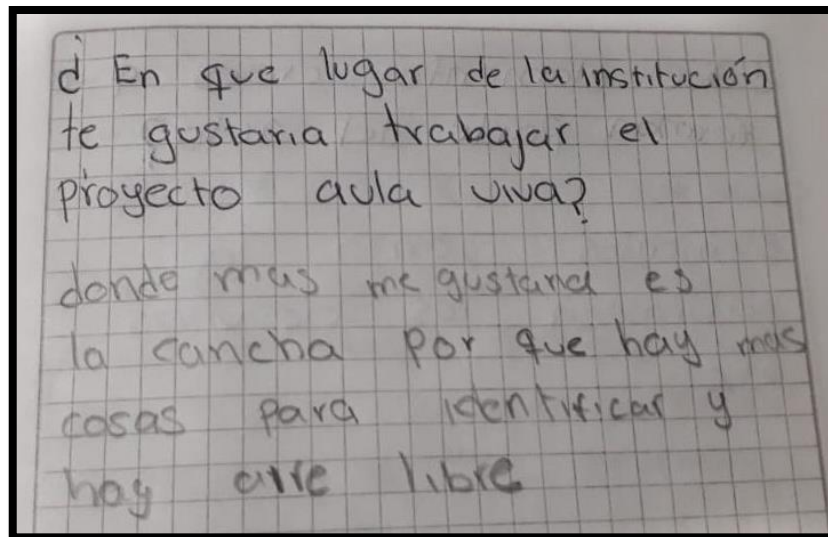 ¿ En que lugar de la institución
te gustaria trabajar el
proyecto aula viva?
donde mas me gustaria es
la cancha por que hay mas
cosas para identificar y
hay aire libre